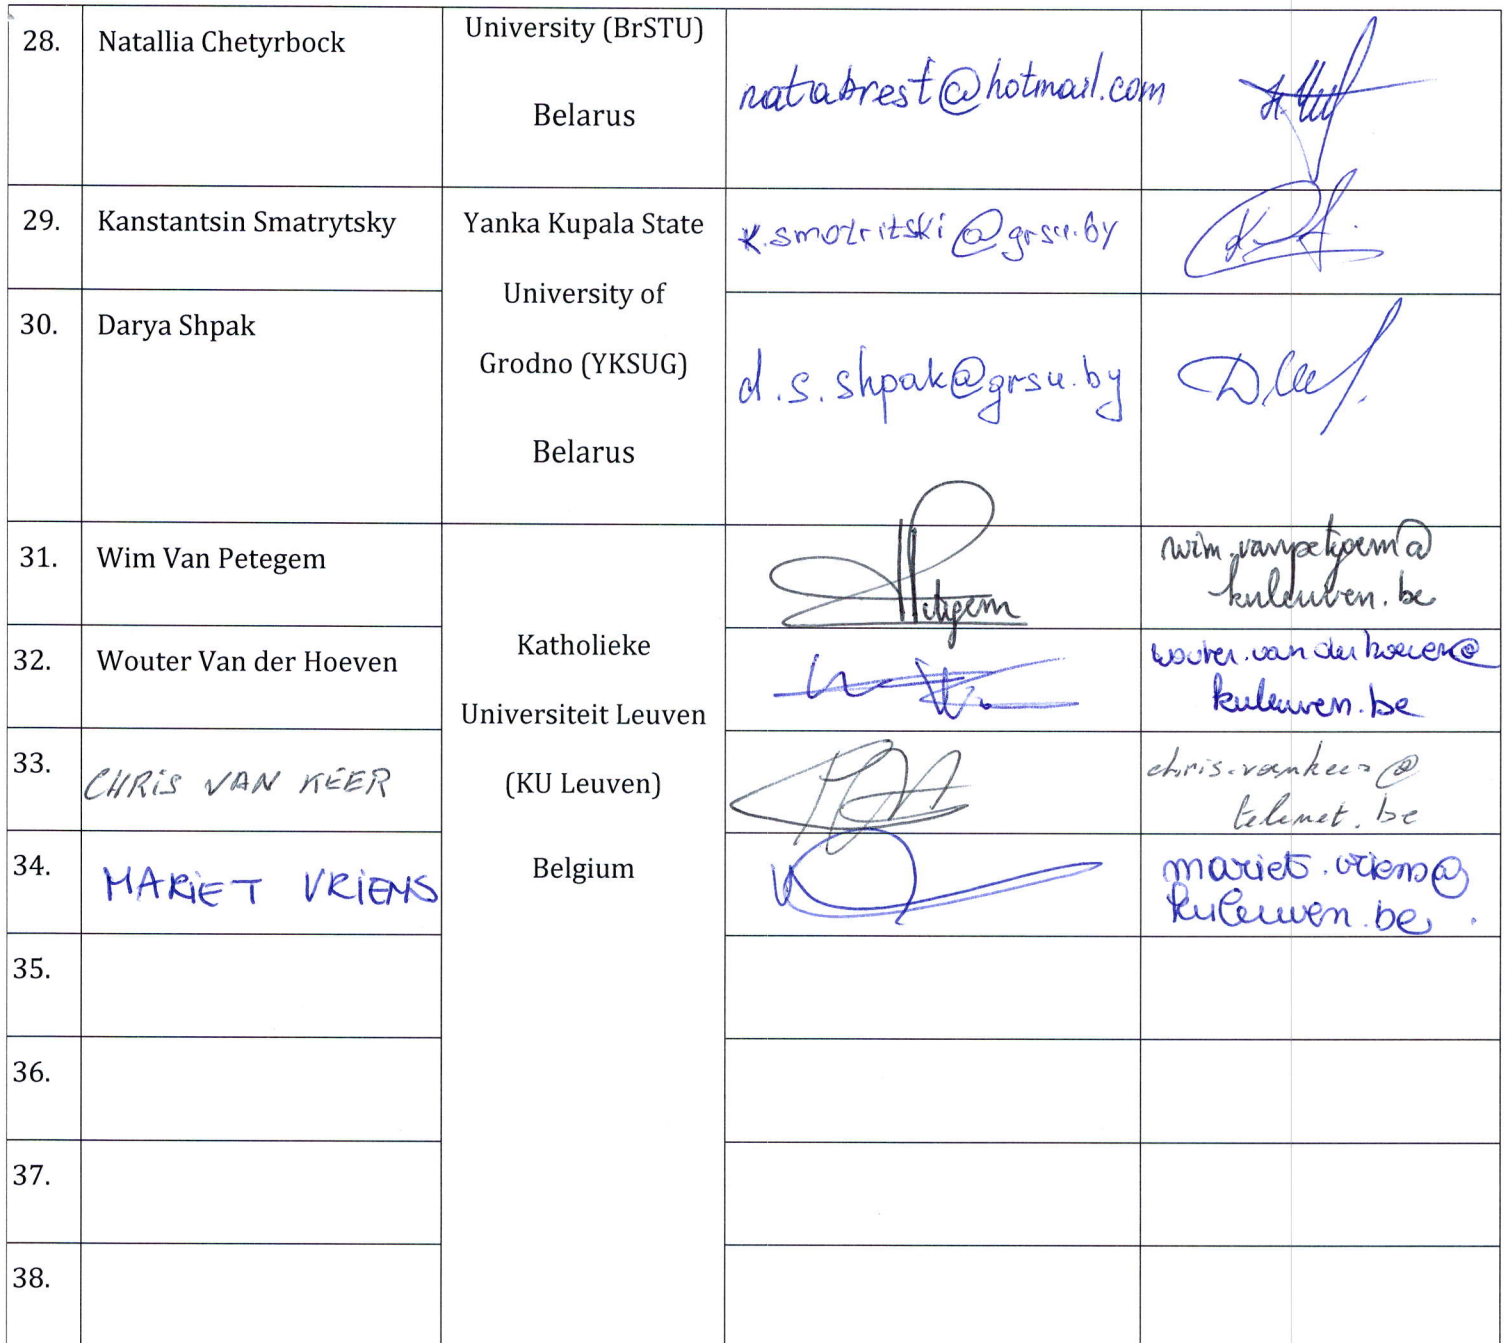 28.
Natallia Chetyrbock
University (BrSTU)
Belarus
natabrest@hotmail.com
29.
Kanstantsin Smatrytsky
Yanka Kupala State
University of
Grodno (YKSUG)
Belarus
k.smotritski@grsu.by
30.
Darya Shpak
d.s.shpak@grsu.by
31.
Wim Van Petegem
Katholieke
Universiteit Leuven
(KU Leuven)
Belgium
Petegem
wim.vanpetegem@
kuleuven.be
32.
Wouter Van der Hoeven
wouter.vanderhoeven@
kuleuven.be
33.
CHRIS VAN KEER
chris.vankeer@
telenet.be
34.
MARIET VRIENS
mariet.vriens@
kuleuven.be
35.
36.
37.
38.